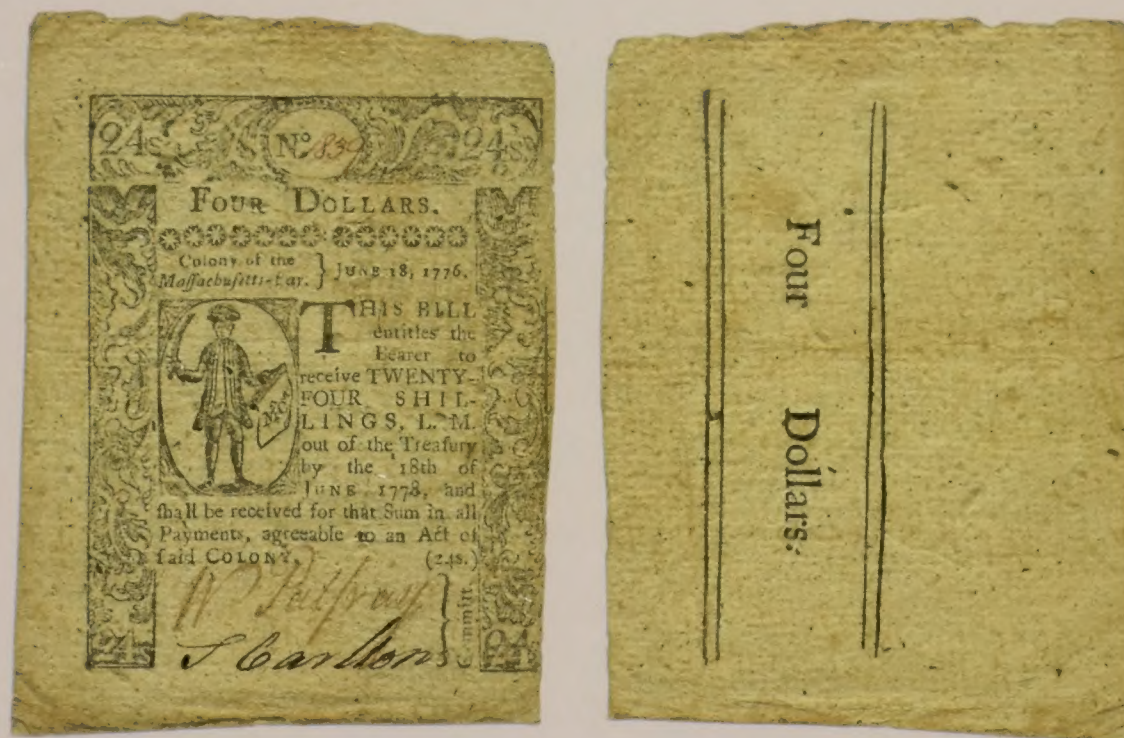 24s. No. 24s.
FOUR DOLLARS.
Colony of the
Maſſachuſetts-Bay. } JUNE 18, 1776.
THIS BILL
entitles the
Bearer to
receive TWENTY-
FOUR SHIL-
LINGS, L. M.
out of the Treaſury
by the 18th of
JUNE 1778, and
ſhall be received for that Sum in all
Payments, agreeable to an Act of
ſaid COLONY. (24s.)
S Carlton
24
Four Dollars.